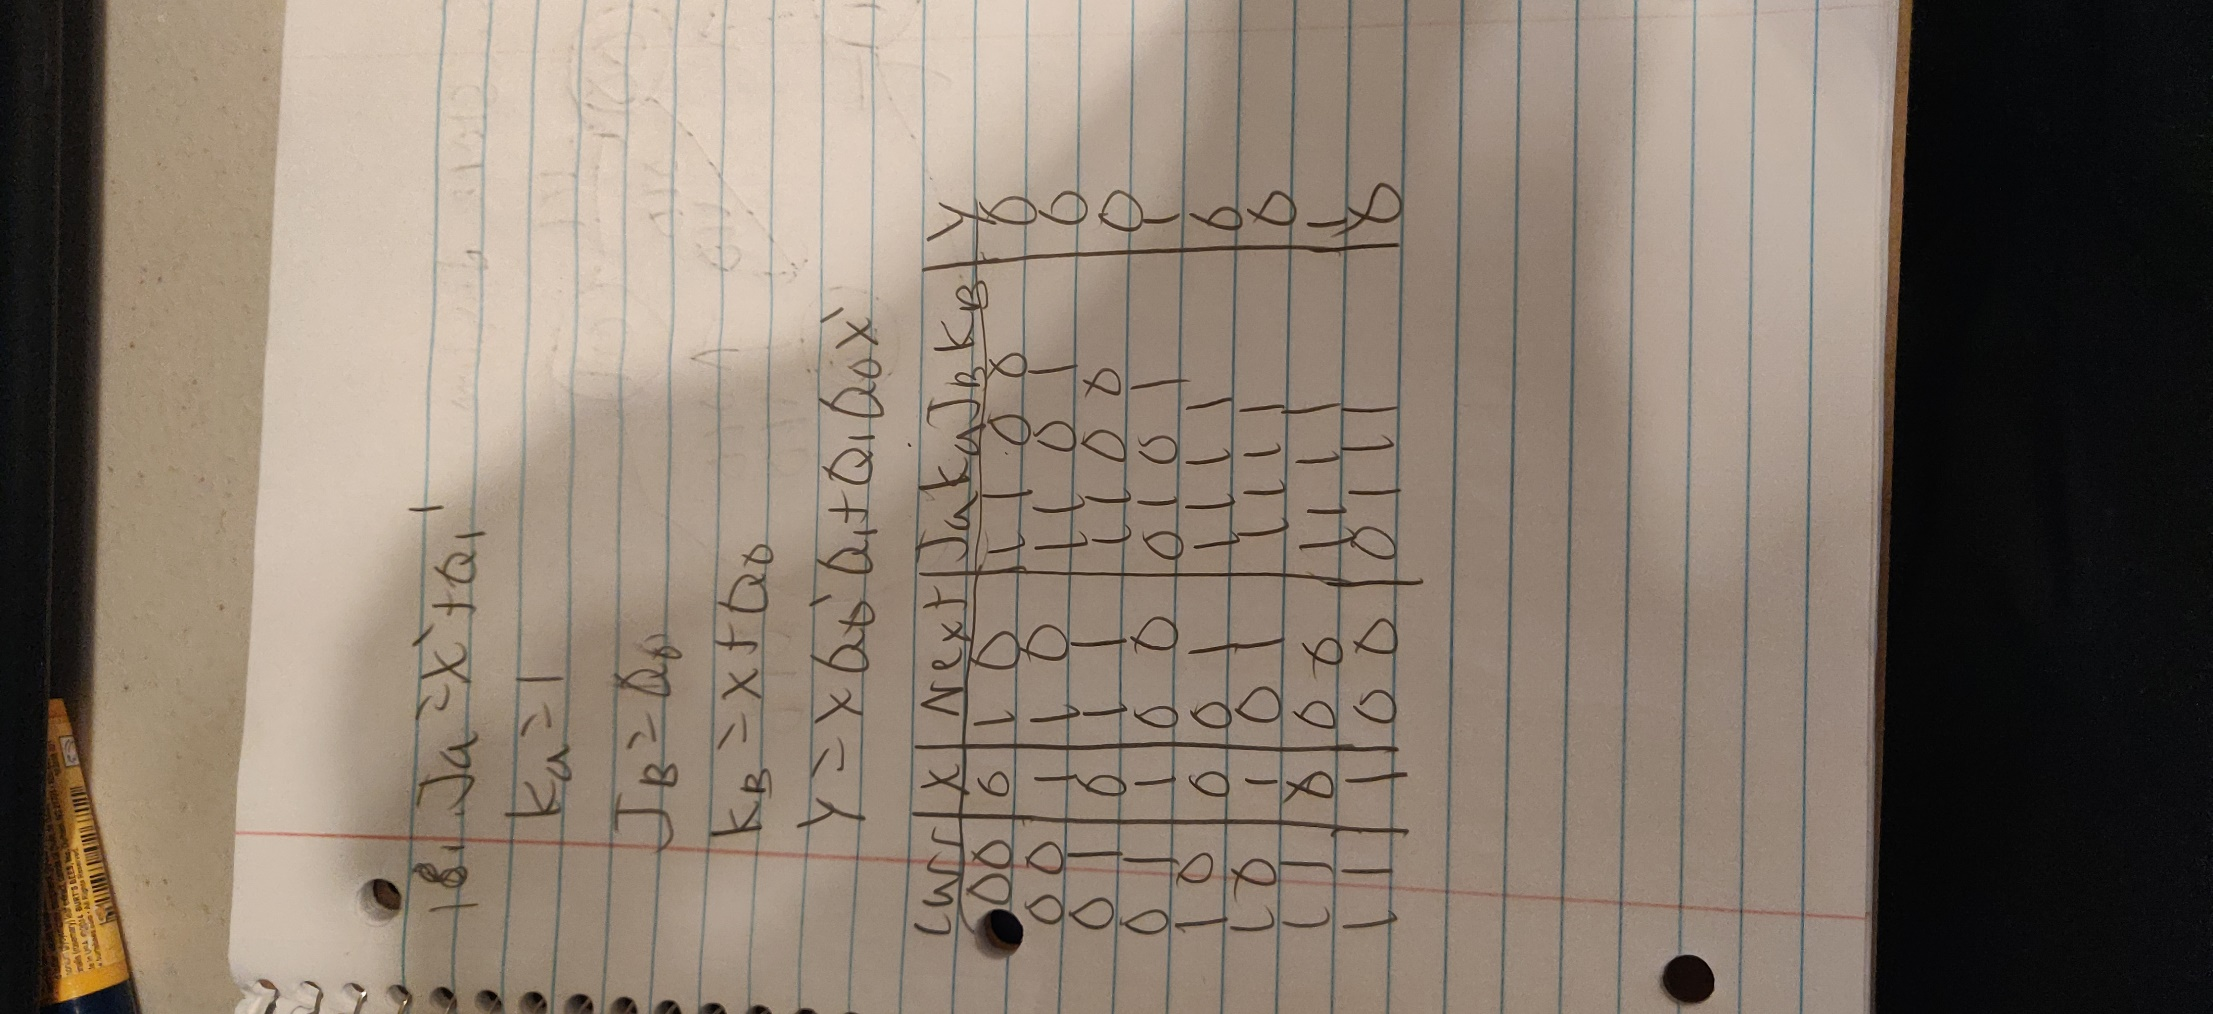 18. Ja = x' + Q1'
Ka = 1
JB = Q0
KB = x + Q0
Y = x Q0' Q1 + Q1 Q0 x'
Curr | X | Next | Ja Ka JB KB | Y
0 0 | 0 | 1 0 | 1 1 0 0 | 0
0 0 | 1 | 1 0 | 1 1 0 1 | 0
0 1 | 0 | 1 1 | 1 1 0 0 | 0
0 1 | 1 | 0 0 | 0 1 0 1 | 1
1 0 | 0 | 0 1 | 1 1 1 1 | 0
1 0 | 1 | 0 1 | 1 1 1 1 | 0
1 1 | 0 | 0 0 | 1 1 1 1 | 1
1 1 | 1 | 0 0 | 0 1 1 1 | 0